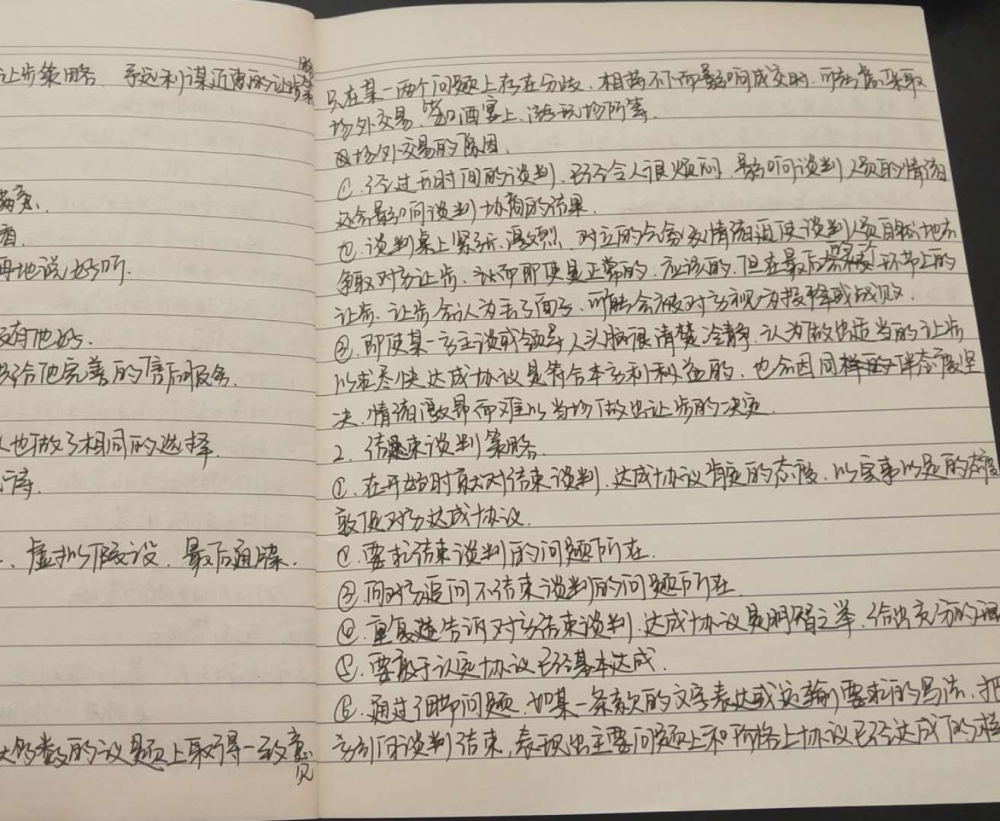 让步策略、予远利谋近惠的让步策略
穷竟、
看、
再地说好听
没有他好、
出给他完善的售后服务、
人也做了相同的选择、
心得、
、虚拟假设、最后通牒、
大多数的议题上取得一致意见
只在某一两个问题上存在分歧、相持不下而影响成交时、可考虑采取
场外交易、如酒宴上、游玩场所等、
②场外交易的原因、
①、经过长时间的谈判、已经令人很烦闷、影响谈判人员的情绪
还会影响谈判协商的结果、
②、谈判桌上紧张、激烈、对立的气氛及情绪迫使谈判人员自然地去
争取对方让步、让而即使是正常的、应该的、但在最后阶段环节上的
让步、让步会认为丢了面子、可能会被对方视为投降或战败、
③、即使某一方主谈或领导人头脑很清楚冷静、认为做出适当的让步
以求尽快达成协议是符合本方利益的、也会因同伴态度坚
决、情绪激昂而难以当场做出让步的决定
2、结束谈判策略、
①、在开始时就对结束谈判、达成协议肯定的态度、以实事以是的态度
敦促对方达成协议、
②、要求结束谈判的问题所在、
③、向对方追问不结束谈判的问题所在、
④、重复告诉对方结束谈判、达成协议是明智之举、给出充分的理
⑤、要敢于认定协议已经基本达成、
⑥、通过细节问题、如某一条款的文字表达或运输要求的写法、把
方引向谈判结束、表现出主要问题上和价格上协议已经达成的样